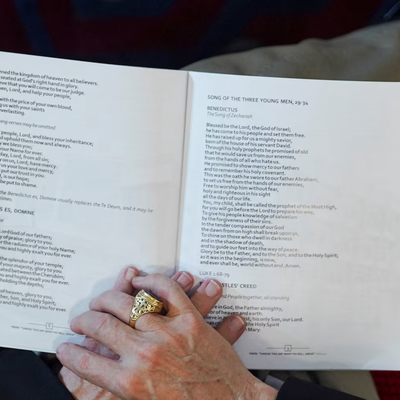 med the kingdom of heaven to all believers.
seated at God's right hand in glory.
ve that you will come to be our judge.
en, Lord, and help your people,
with the price of your own blood,
ng us with your saints
verlasting.
ng verses may be omitted
people, Lord, and bless your inheritance;
d uphold them now and always.
y we bless you;
your Name for ever.
ay, Lord, from all sin;
y on us, Lord, have mercy.
us your love and mercy;
put our trust in you.
, is our hope;
be put to shame.
the Benedictus es, Domine usually replaces the Te Deum, and it may be
S ES, DOMINE
Lord God of our fathers;
y of praise; glory to you.
the radiance of your holy Name;
e you and highly exalt you for ever.
the splendor of your temple;
of your majesty, glory to you.
ated between the Cherubim;
e you and highly exalt you for ever.
holding the depths;
of heaven, glory to you;
ther, Son, and Holy Spirit;
you and highly exalt you for ever.
SONG OF THE THREE YOUNG MEN, 29-34
BENEDICTUS
The Song of Zechariah
Blessed be the Lord, the God of Israel;
he has come to his people and set them free.
He has raised up for us a mighty savior,
born of the house of his servant David.
Through his holy prophets he promised of old
that he would save us from our enemies,
from the hands of all who hate us.
He promised to show mercy to our fathers
and to remember his holy covenant.
This was the oath he swore to our father Abraham,
to set us free from the hands of our enemies,
Free to worship him without fear,
holy and righteous in his sight
all the days of our life.
You, my child, shall be called the prophet of the Most High,
for you will go before the Lord to prepare his way,
To give his people knowledge of salvation
by the forgiveness of their sins.
In the tender compassion of our God
the dawn from on high shall break upon us,
To shine on those who dwell in darkness
and in the shadow of death,
and to guide our feet into the way of peace.
Glory be to the Father, and to the Son, and to the Holy Spirit;
as it was in the beginning, is now,
and ever shall be, world without end. Amen.
LUKE 1:68-79
STLES' CREED
and People together, all standing
e in God, the Father almighty,
of heaven and earth.
lieve in Jesus Christ, his only Son, our Lord.
the Holy Spirit